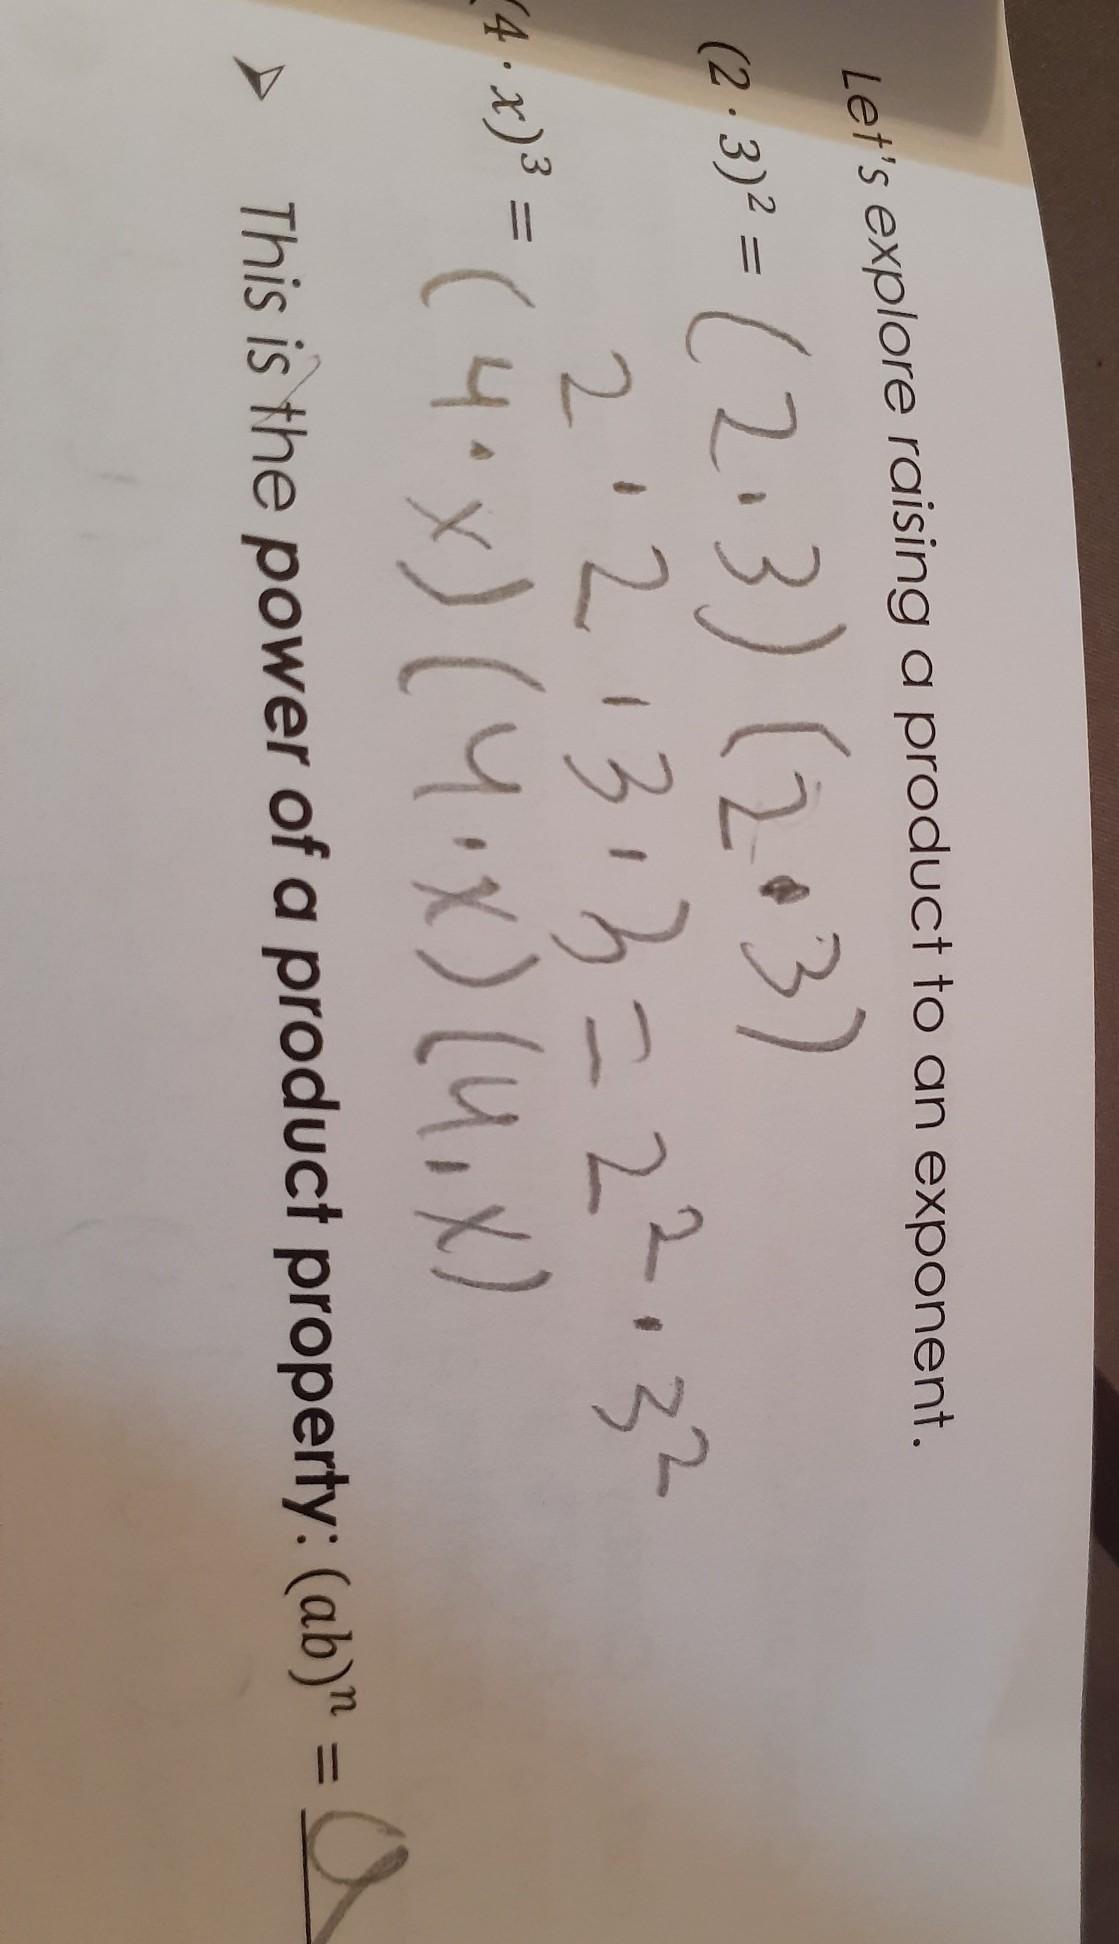 Let's explore raising a product to an exponent.
(2 · 3)² = (2 · 3) (2 · 3)
2 · 2 · 3 · 3 = 2² · 3²
(4 · x)³ = (4 · x) (4 · x) (4 · x)
➢ This is the power of a product property: (ab)ⁿ = a